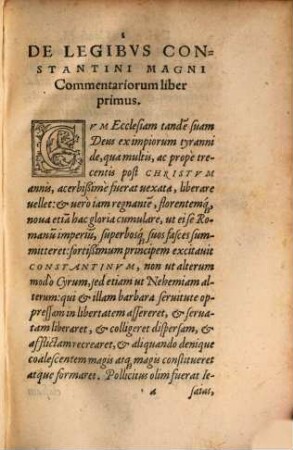 1
DE LEGIBVS CON-
STANTINI MAGNI
Commentariorum liber
primus.
CVM Ecclesiam tandē suam
Deus ex impiorum tyranni
de, qua multis, ac propè tre-
centis post CHRISTVM
annis, acerbißimè fuerat uexata, liberare
uellet: & uerò iam regnantē, florentemq́;
noua etiā hac gloria cumulare, ut ei se Ro-
manū imperiū, superbosq́; suos fasces sum-
mitteret: fortißimum principem excitauit
CONSTANTINVM, non ut alterum
modò Cyrum, sed etiam ut Nehemiam al-
terum: qui & illam barbara seruitute op-
pressam in libertatem assereret, & serua-
tam liberaret, & colligeret dispersam, &
afflictam recrearet, & aliquando denique
coalescentem magis atq́; magis constitueret
atque formaret. Pollicitus olim fuerat Ie-
a saias,